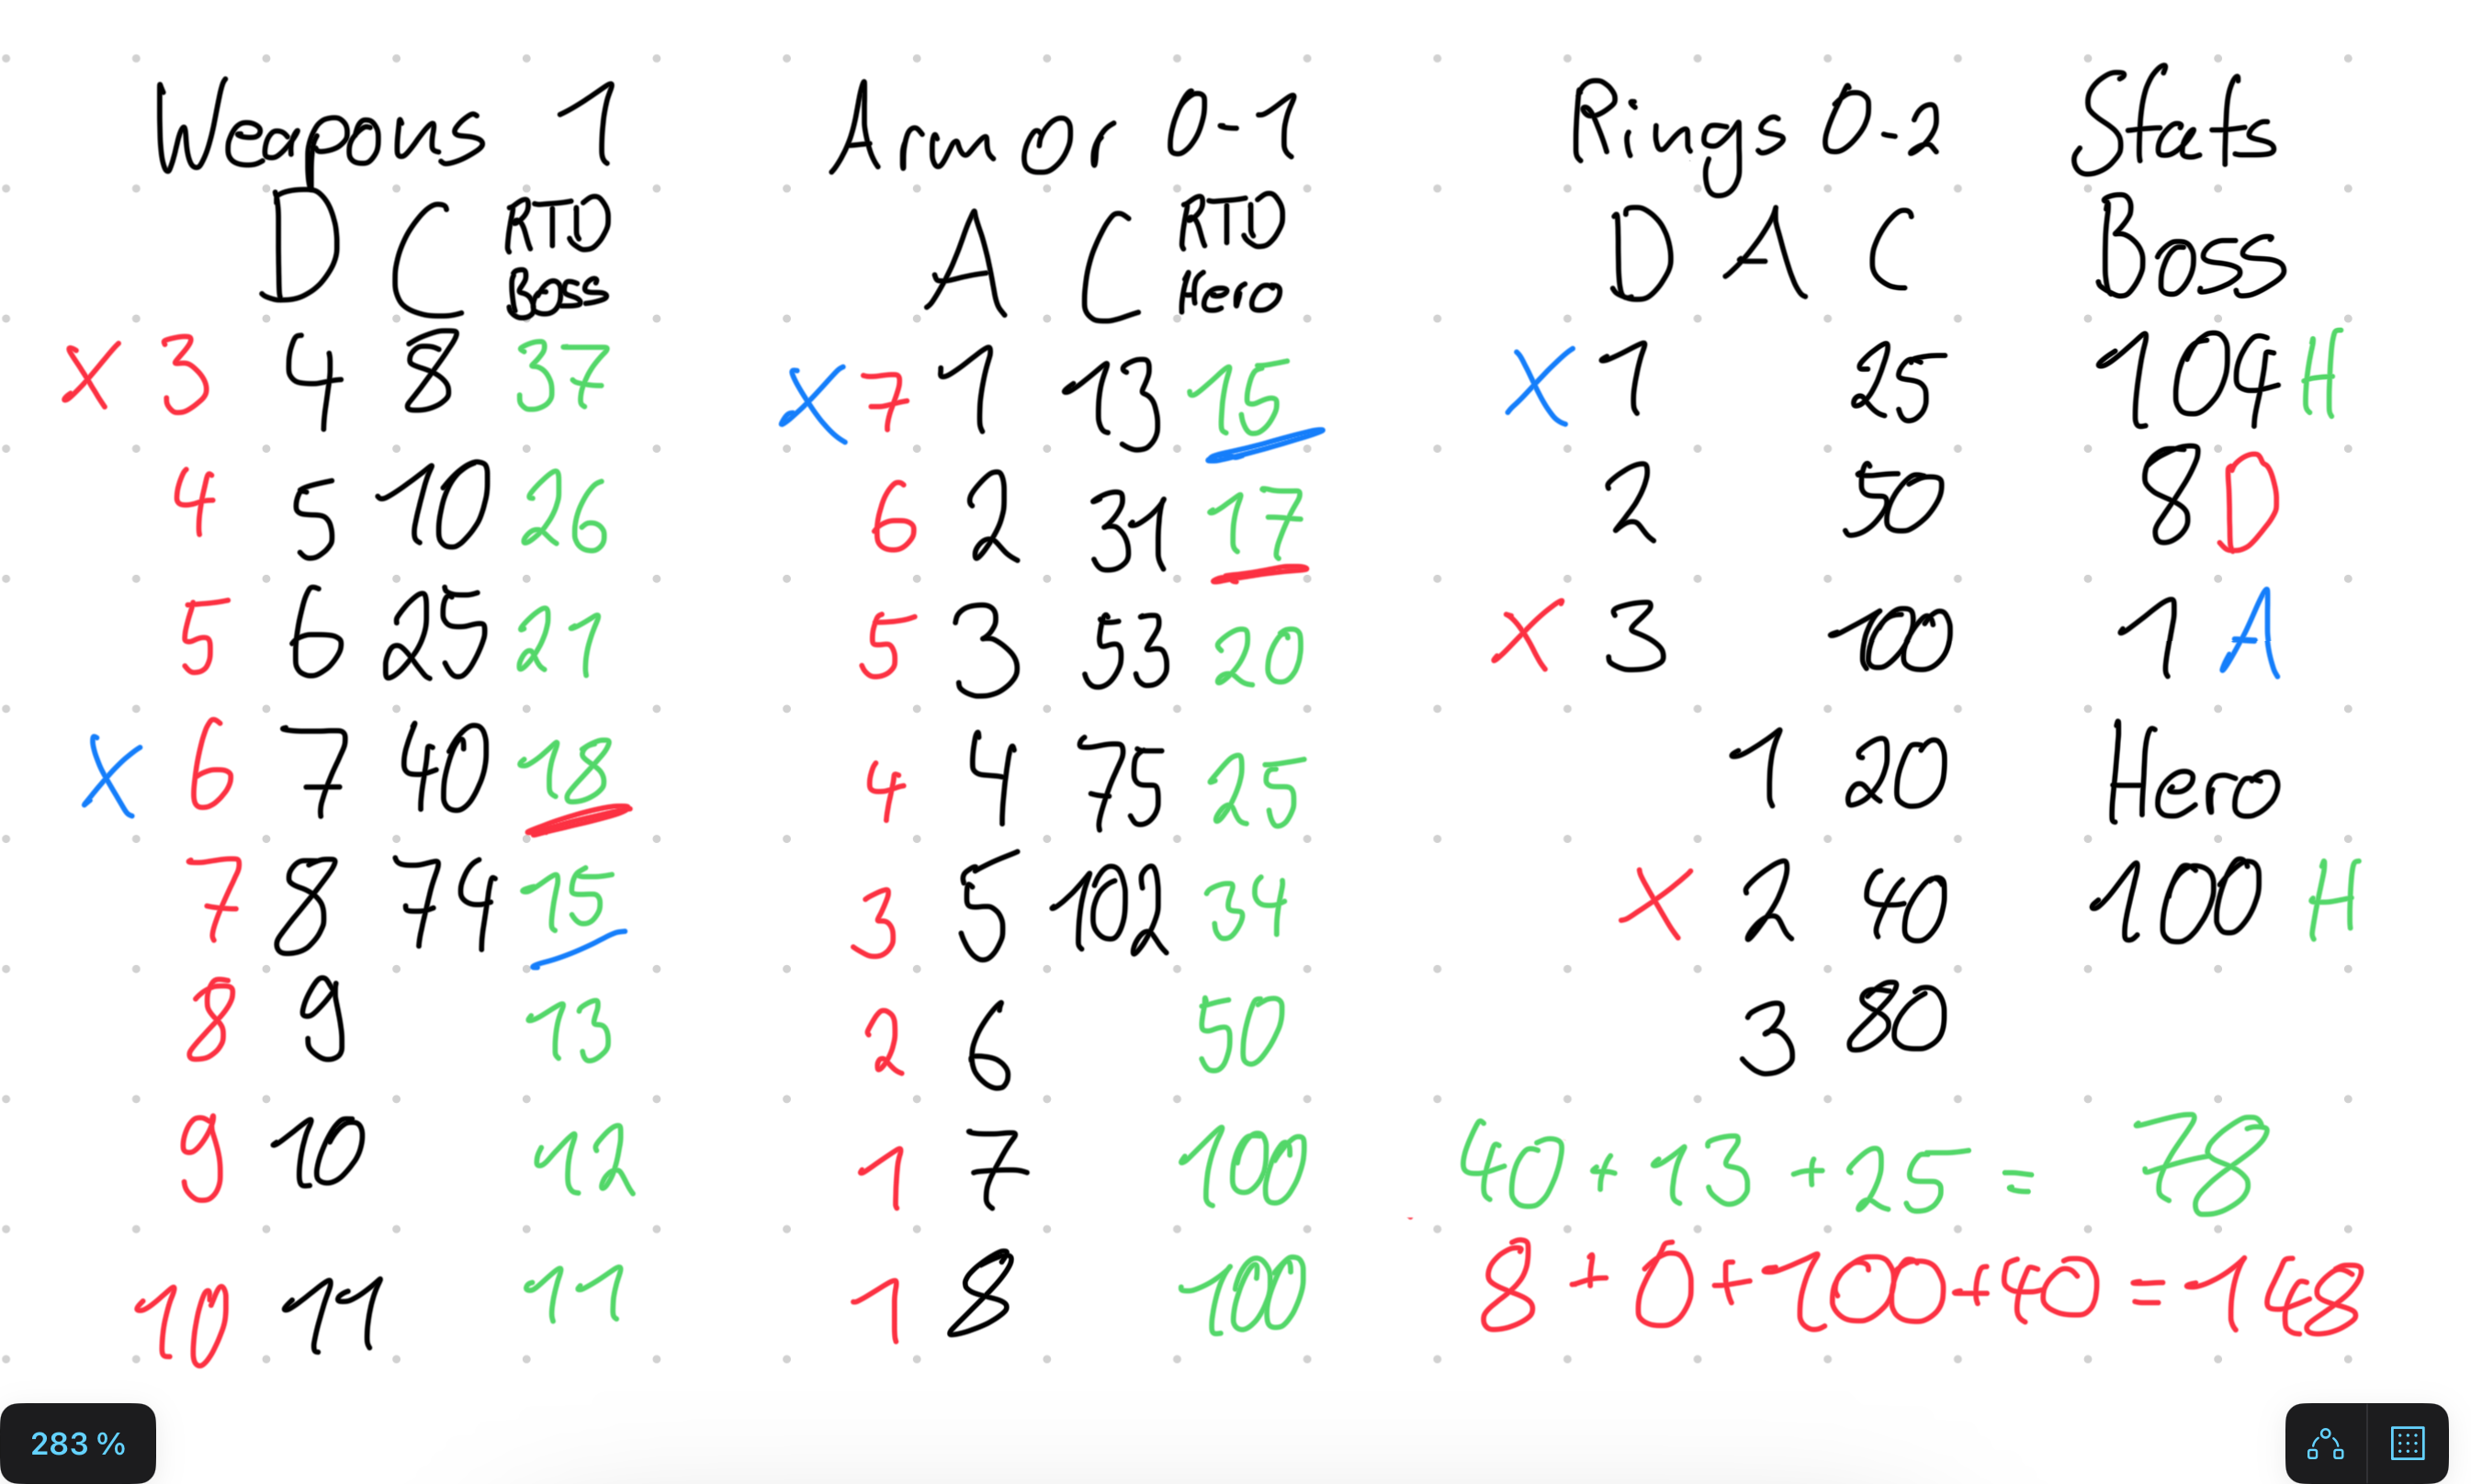 Weapons 1 Armor 0-1 Rings 0-2 Stats
D C RTD Boss A C RTD Hero D A C Boss
X 3 4 8 37 X 7 1 13 15 X 1 25 104 H
4 5 10 26 6 2 31 17 2 50 8 D
5 6 25 21 5 3 53 20 X 3 100 1 A
X 6 7 40 18 4 4 75 25 1 20 Hero
7 8 74 15 3 5 102 34 X 2 40 100 H
8 9 13 2 6 50 3 80
9 10 12 1 7 100 40 + 13 + 25 = 78
10 11 11 1 8 100 8 + 0 + 100 + 40 = 148
283 %